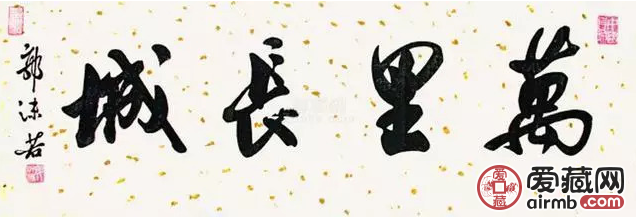 萬里長城
郭沫若
爱藏网
airmb.com